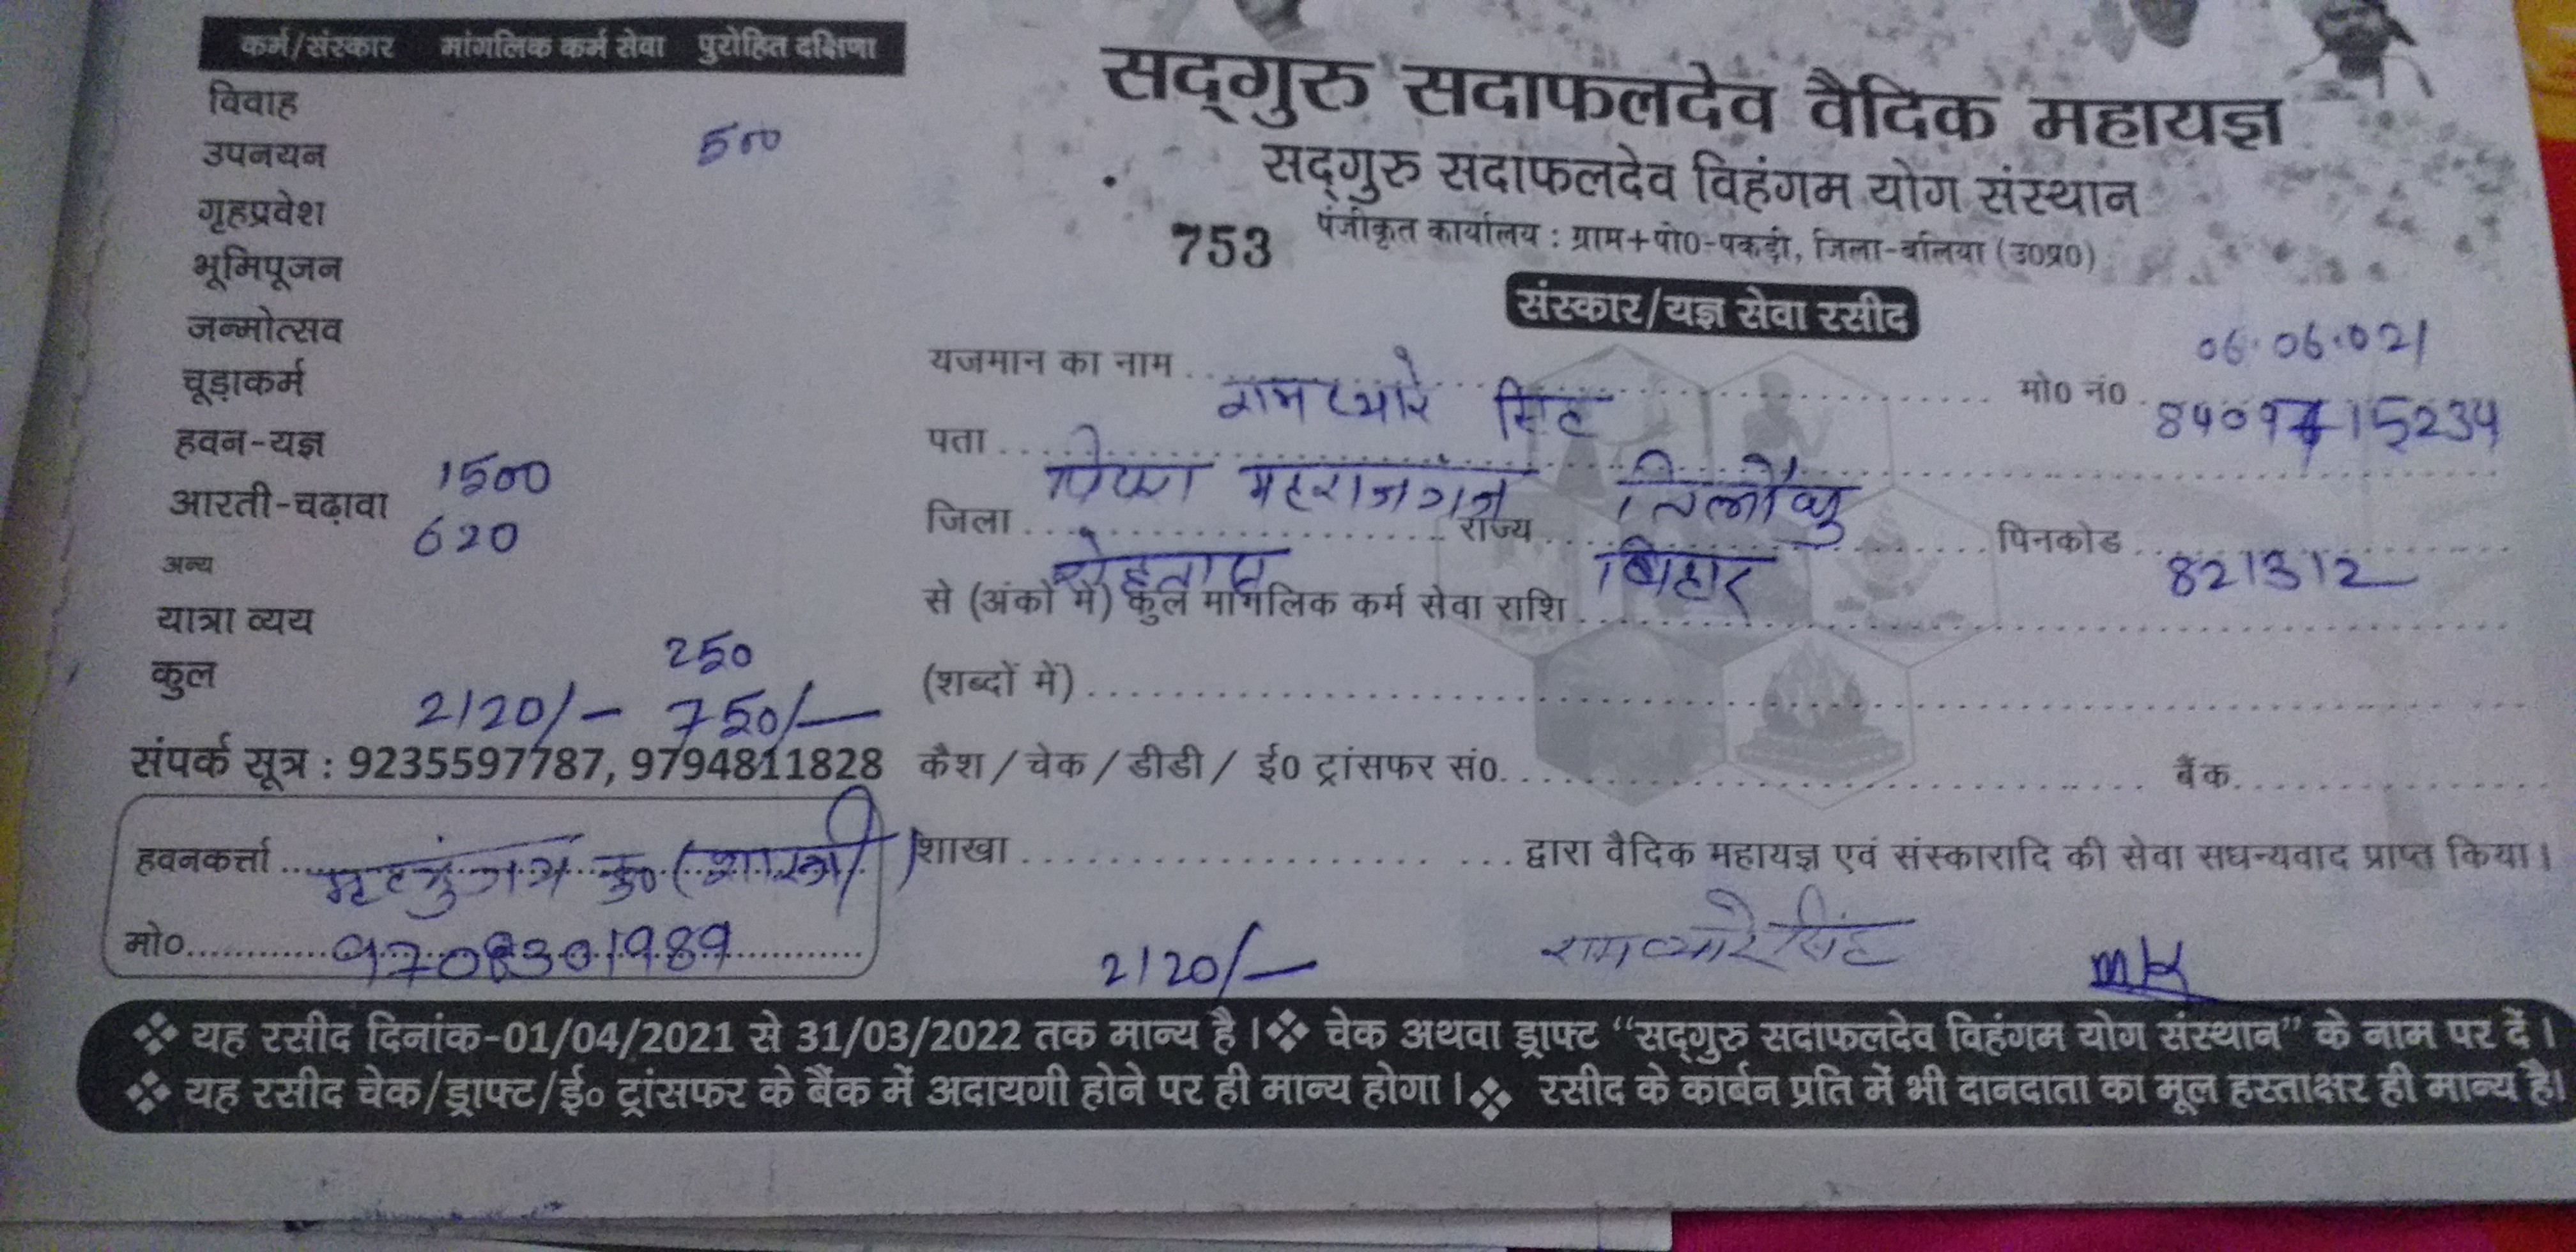 कर्म/संस्कार मांगलिक कर्म सेवा पुरोहित दक्षिणा
विवाह
उपनयन 500
गृहप्रवेश
भूमिपूजन
जन्मोत्सव
चूड़ाकर्म
हवन-यज्ञ 1500
आरती-चढ़ावा 620
अन्य
यात्रा व्यय 250
कुल 2120/- 750/-
संपर्क सूत्र : 9235597787, 9794811828
हवनकर्त्ता कु० (शास्त्री)
मो० 9708301989
सद्गुरु सदाफलदेव वैदिक महायज्ञ
सद्गुरु सदाफलदेव विहंगम योग संस्थान
753 पंजीकृत कार्यालय : ग्राम+पो०-पकड़ी, जिला-बलिया (उ०प्र०)
संस्कार/यज्ञ सेवा रसीद
06.06.021
यजमान का नाम रामप्यारे सिंह मो० नं०
पता महाराजगंज तिलौथु
जिला रोहतास राज्य बिहार पिनकोड 821312
से (अंकों में) कुल मांगलिक कर्म सेवा राशि
(शब्दों में)
कैश / चेक / डीडी / ई० ट्रांसफर सं० बैंक
शाखा द्वारा वैदिक महायज्ञ एवं संस्कारादि की सेवा सधन्यवाद प्राप्त किया।
2120/- रामप्यारे सिंह MK
❖ यह रसीद दिनांक-01/04/2021 से 31/03/2022 तक मान्य है। ❖ चेक अथवा ड्राफ्ट “सद्गुरु सदाफलदेव विहंगम योग संस्थान” के नाम पर दें।
❖ यह रसीद चेक/ड्राफ्ट/ई० ट्रांसफर के बैंक में अदायगी होने पर ही मान्य होगा। ❖ रसीद के कार्बन प्रति में भी दानदाता का मूल हस्ताक्षर ही मान्य है।